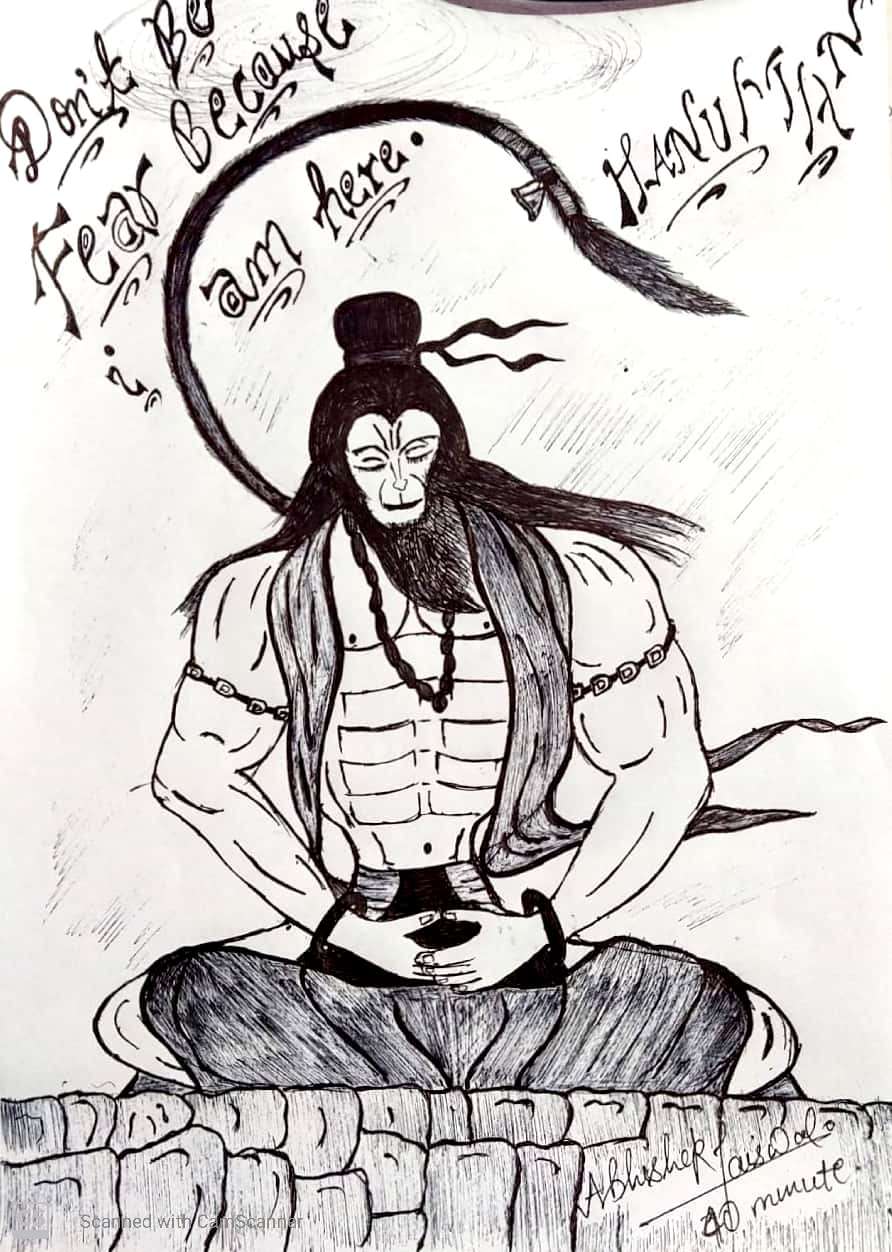 Don't Be
Fear Because
i am here.
HANUMAN
Abhishek Jaiswal.
40 minute.
Scanned with CamScanner